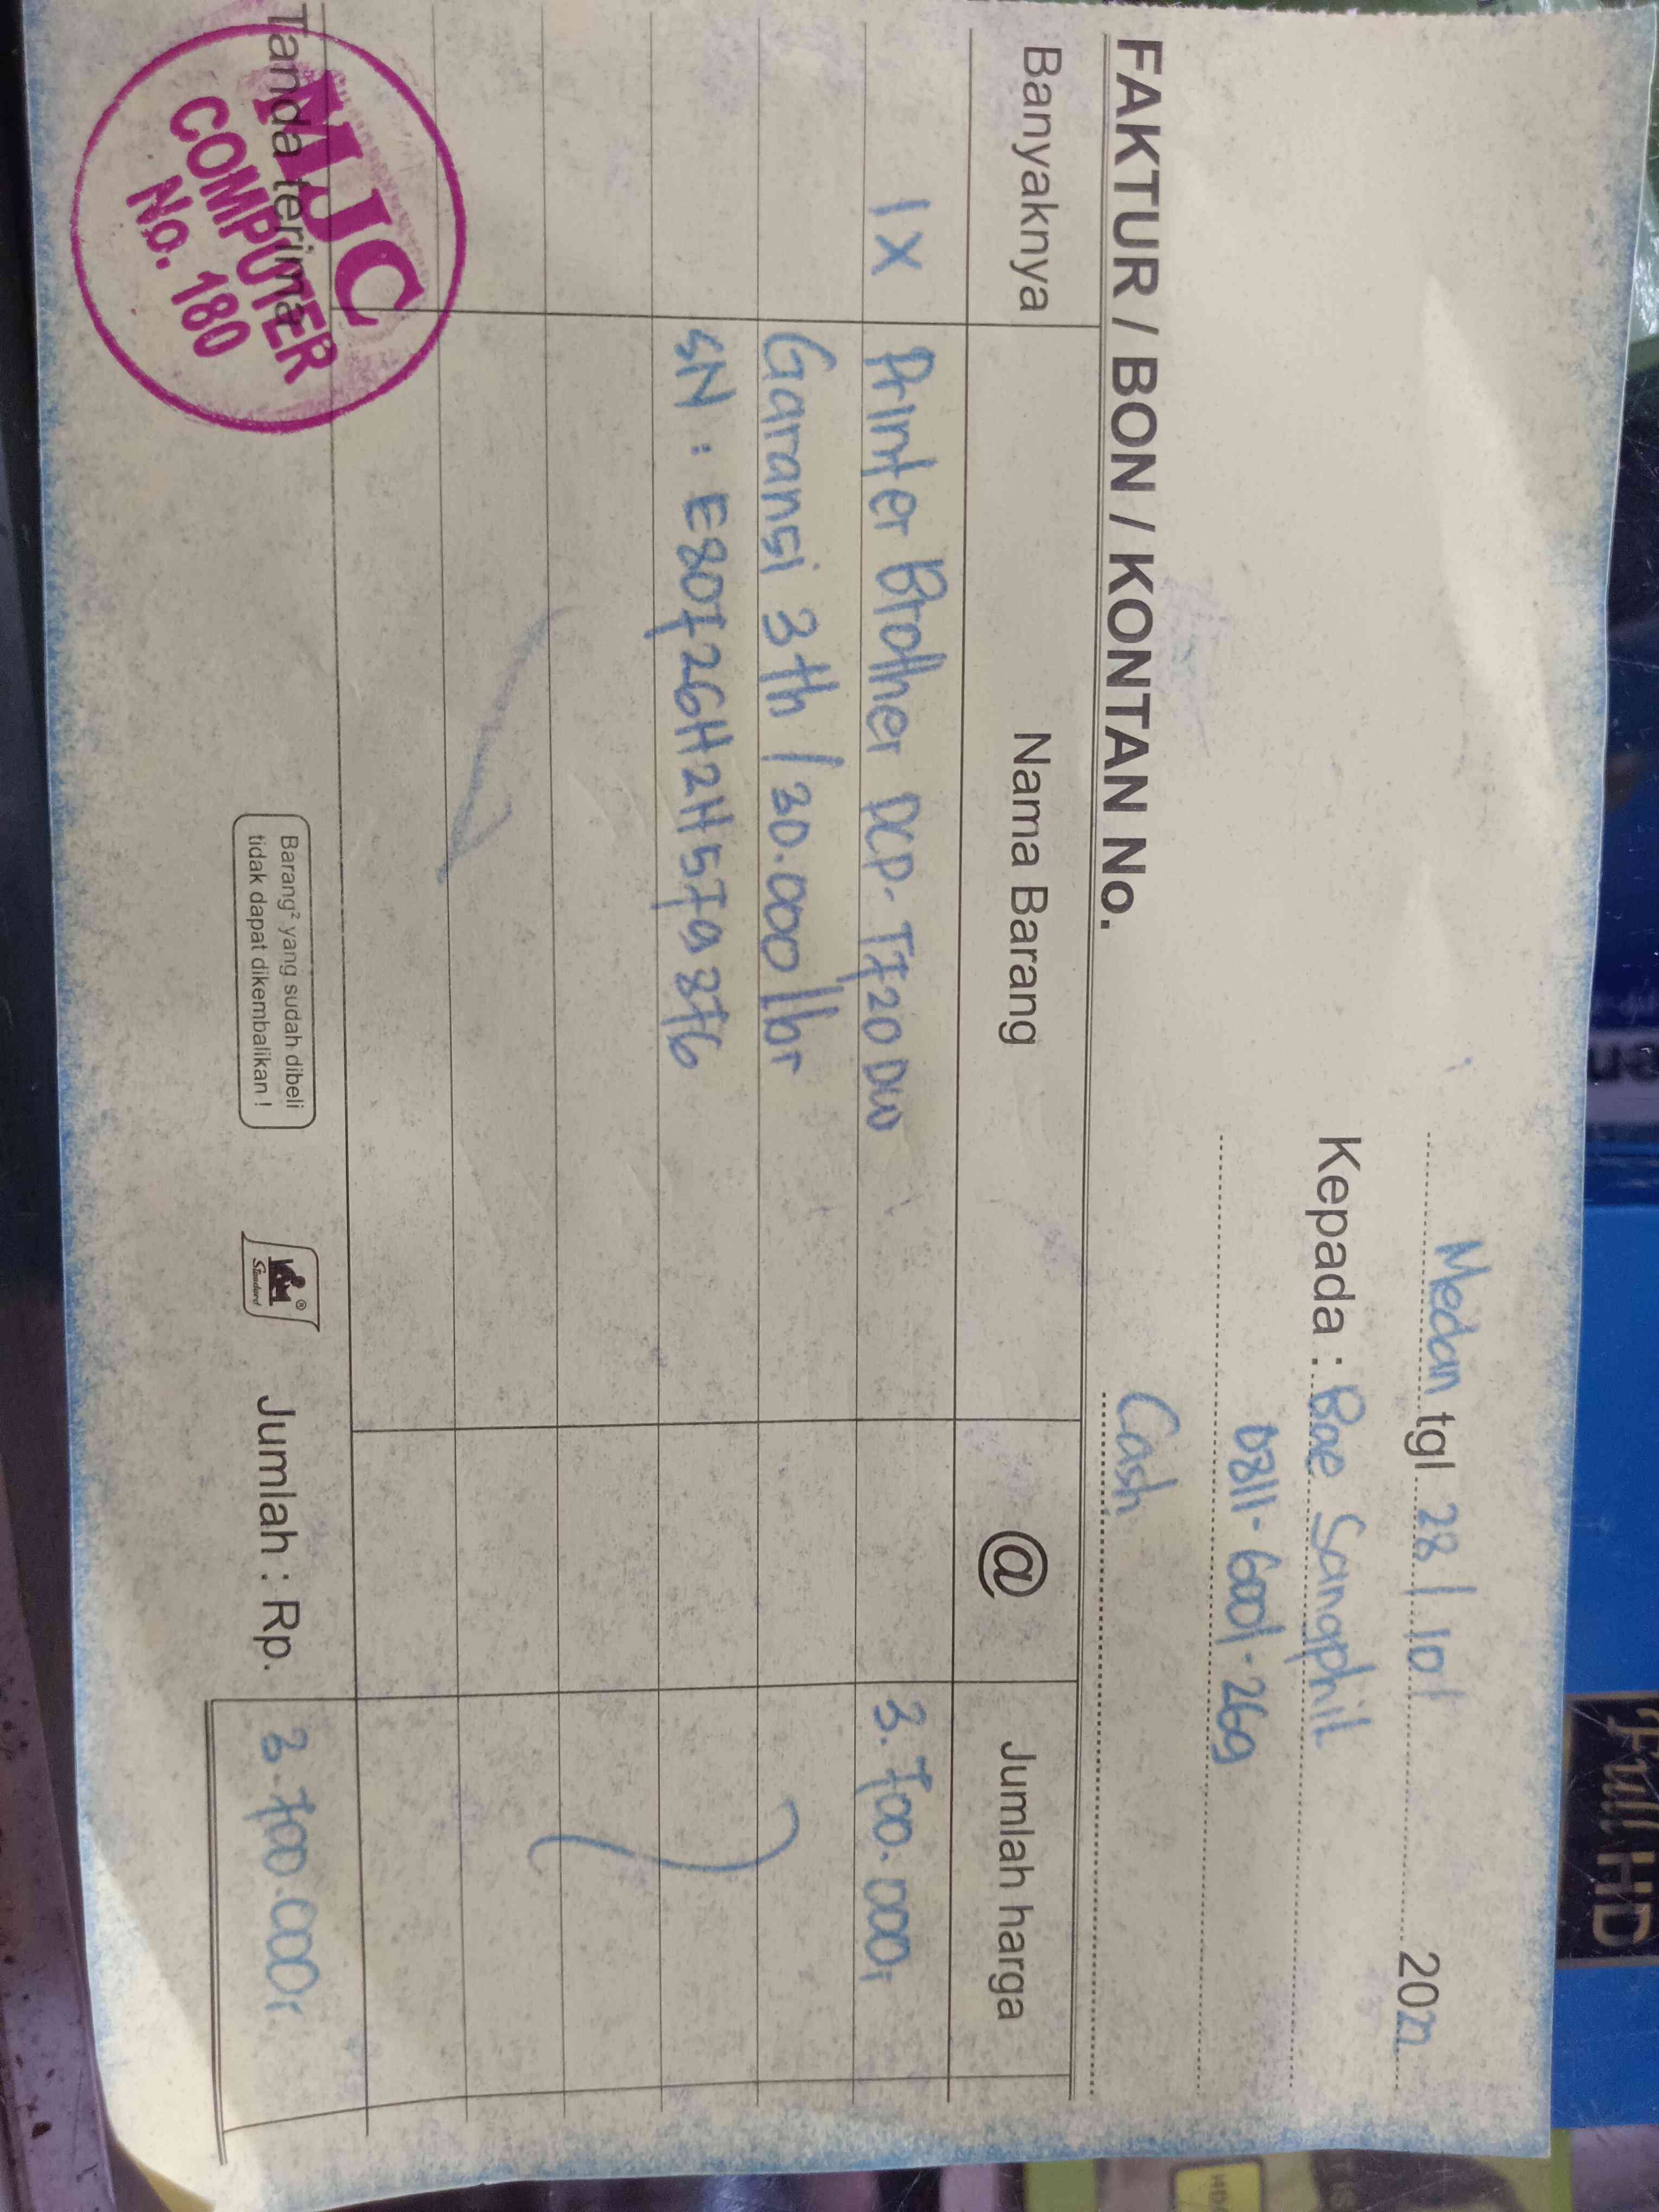 Medan tgl 28 / 10 / 20
Kepada : Bae Sangphil
0811-6001-269
FAKTUR / BON / KONTAN No. Cash
Banyaknya Nama Barang @ Jumlah harga
1 X Printer Brother DCP-T720DW 3.700.000,
Garansi 3th / 30.000 lbr
SN : E80726H2H579376
Tanda terima
MJC
COMPUTER
No. 180
Barang² yang sudah dibeli
tidak dapat dikembalikan !
Standard
Jumlah : Rp. 3.700.000,
Full HD